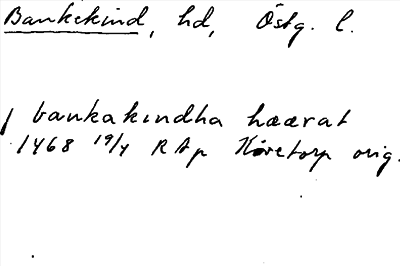 Bankekind, hd, Östg. l.
bankakindha hæærat
1468 19/4 RAp Höretorp orig.